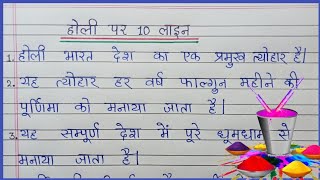 होली पर 10 लाइन
1. होली भारत देश का एक प्रमुख त्योहार है।
2. यह त्योहार हर वर्ष फाल्गुन महीने की
पूर्णिमा को मनाया जाता है।
3. यह सम्पूर्ण देश में पूरे धूमधाम से
मनाया जाता है।